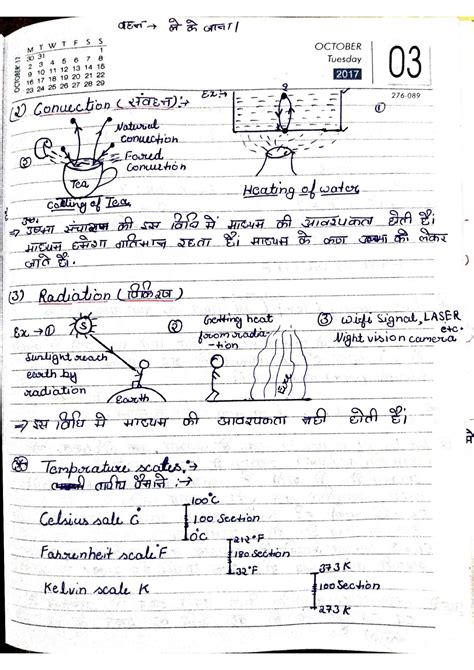 वहन → ले के जाना।
OCTOBER 17
M T W T F S S
30 31 1
2 3 4 5 6 7 8
9 10 11 12 13 14 15
16 17 18 19 20 21 22
23 24 25 26 27 28 29
OCTOBER
Tuesday
2017
03
276-089
(2) Convection (संवहन) :→
Ex:→
①
Natural convection
Forced Convection
②
Tea
Cooling of Tea
Heating of water
⇒ उष्मा संचारण की इस विधि में माध्यम की आवश्यकता होती है।
माध्यम हमेशा गतिमान रहता है। माध्यम के कण उष्मा को लेकर
जाते है।
(3) Radiation (विकिरण)
Ex → ①
S
Sunlight reach
earth by
radiation
Earth
②
Getting heat
from radia-
-tion
Fire
③ Wifi Signal, LASER
etc.
Night vision camera
⇒ इस विधि मे माध्यम की आवश्यकता नही होती है।
Temperature scales :→
तापीय पैमाने :→
Celsius sale C°
100°C
100 Section
0°C
Fahrenheit scale °F
212°F
180 section
32°F
Kelvin scale K
373 K
100 Section
273 K